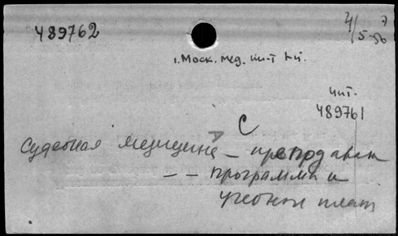 489762
4/5-56 7
1. Моск. мед. ин-т
чит.
489761
С
Судебная медицина – преподаван
– – программы и
учебный план